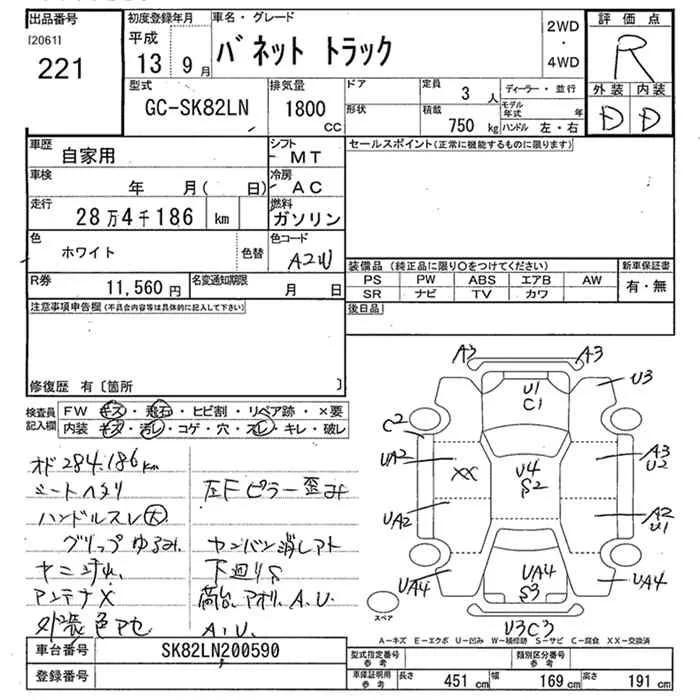 出品番号
[2061]
221
初度登録年月
平成
13 9 月
車名・グレード
バネット トラック
2WD
・
4WD
評価点
R
外装 内装
D D
型式
GC-SK82LN
排気量
1800
CC
ドア
形状
定員
3 人
積載
750 kg
ディーラー・並行
モデル年式 年
ハンドル 左・右
車歴
自家用
シフト
MT
車検
年 月( 日)
冷房
AC
走行
28万4千186 km
燃料
ガソリン
色
ホワイト
色替
色コード
A2W
R券
11,560 円
名変通知期限
月 日
セールスポイント(正常に機能するものに限ります)
装備品(純正品に限り○をつけてください)
PS PW ABS エアB AW
SR ナビ TV カワ
新車保証書
有・無
後日品
注意事項申告欄(不具合内容等は具体的に記入して下さい)
修復歴 有〔箇所 〕
検査員記入欄
FW キズ・飛石・ヒビ割・リペア跡・×要
内装 キズ・汚レ・コゲ・穴・スレ・キレ・破レ
オド 284.186km
シートヘタリ
ハンドルスレ大
グリップゆるみ
ヤニ汚れ
アンテナX
外装色アセ
左Fピラー歪み
カンバン消しアト
下廻りS
荷台、アオリ、A.U.
A.U.
A3 A3
U3
U1
C1
C2
UA2
XX
U4
S2
A3
U2
UA2
A2
U1
UA4
UA4
S3
UA4
U3C3
スペア
A−キズ E−エクボ U−凹ミ W−補修跡 S−サビ C−腐食 XX−交換済
車台番号
SK82LN200590
登録番号
型式指定番号
参考
類別区分番号
参考
車庫証明用
参考
長さ 451 cm
幅 169 cm
高さ 191 cm